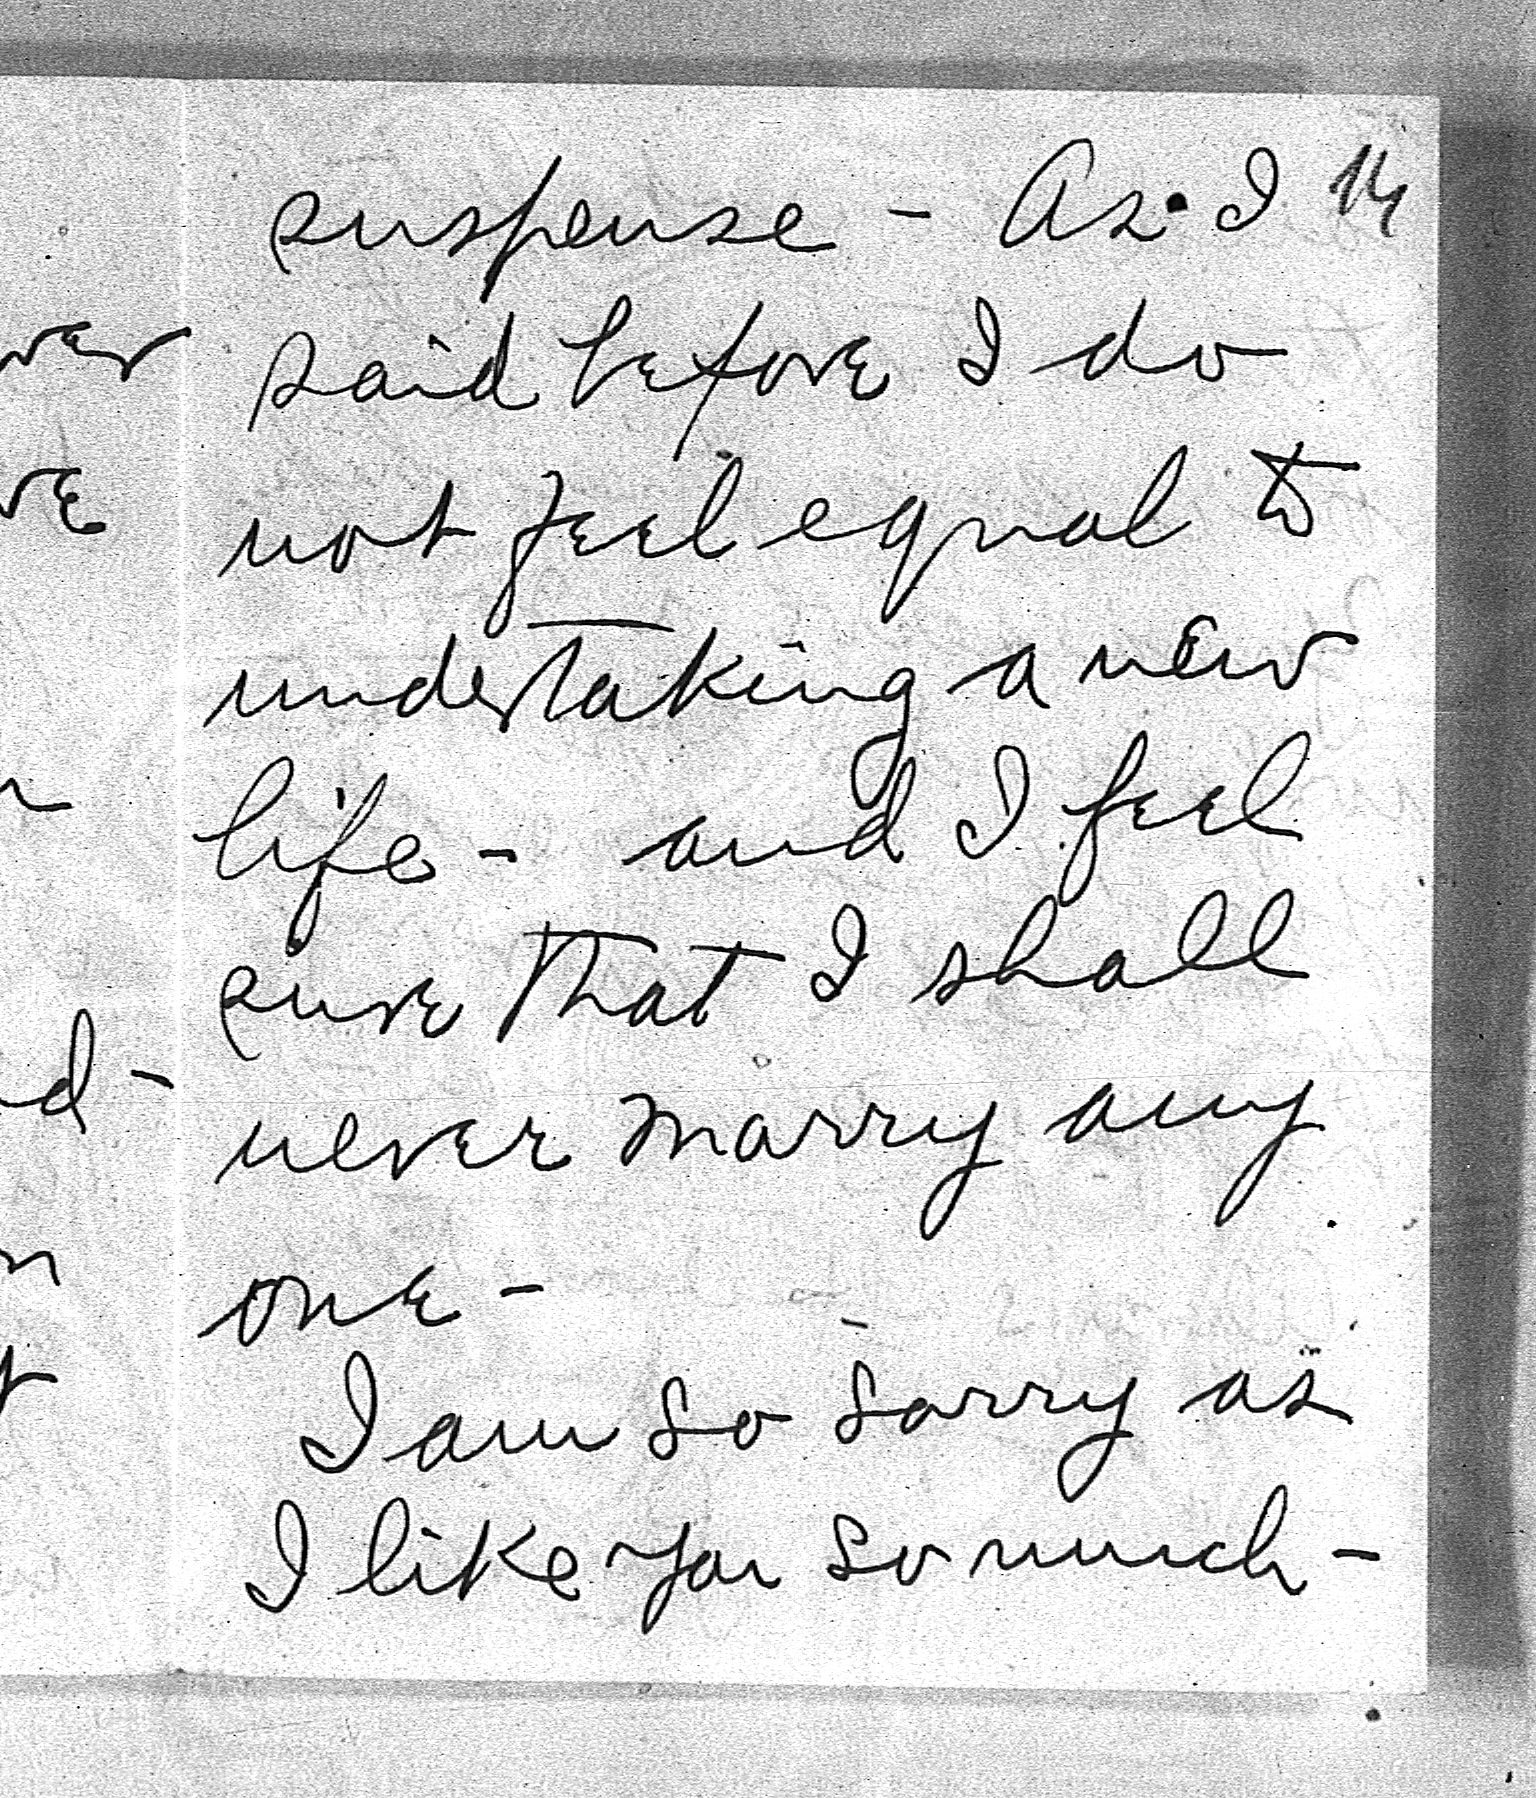 suspense - As I 14
said before I do
not feel equal to
undertaking a new
life - and I feel
sure that I shall
never marry any
one -
I am so sorry as
I like you so much -